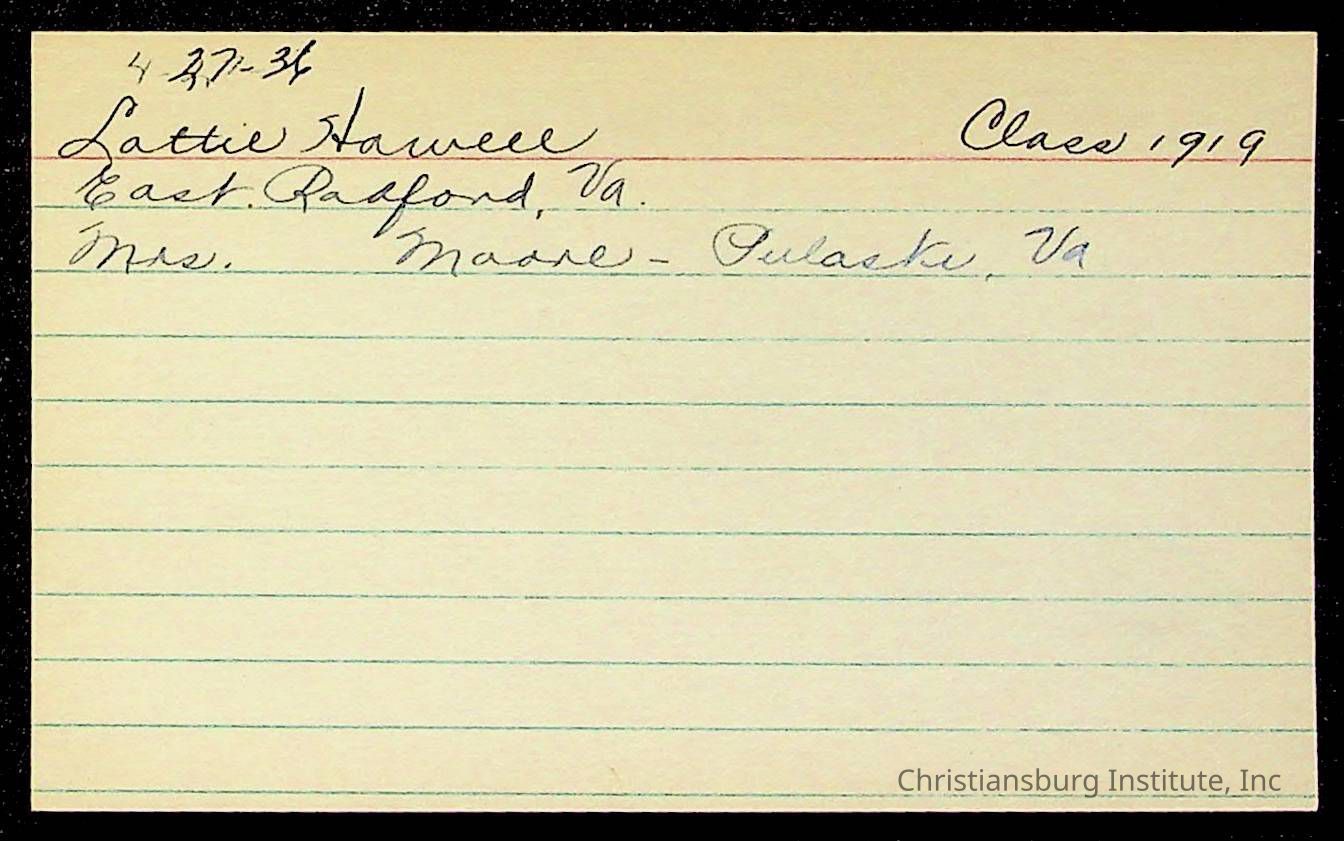 4-27-36
Lottie Howell Class 1919
East Radford, Va.
Mrs. Moore - Pulaski, Va
Christiansburg Institute, Inc